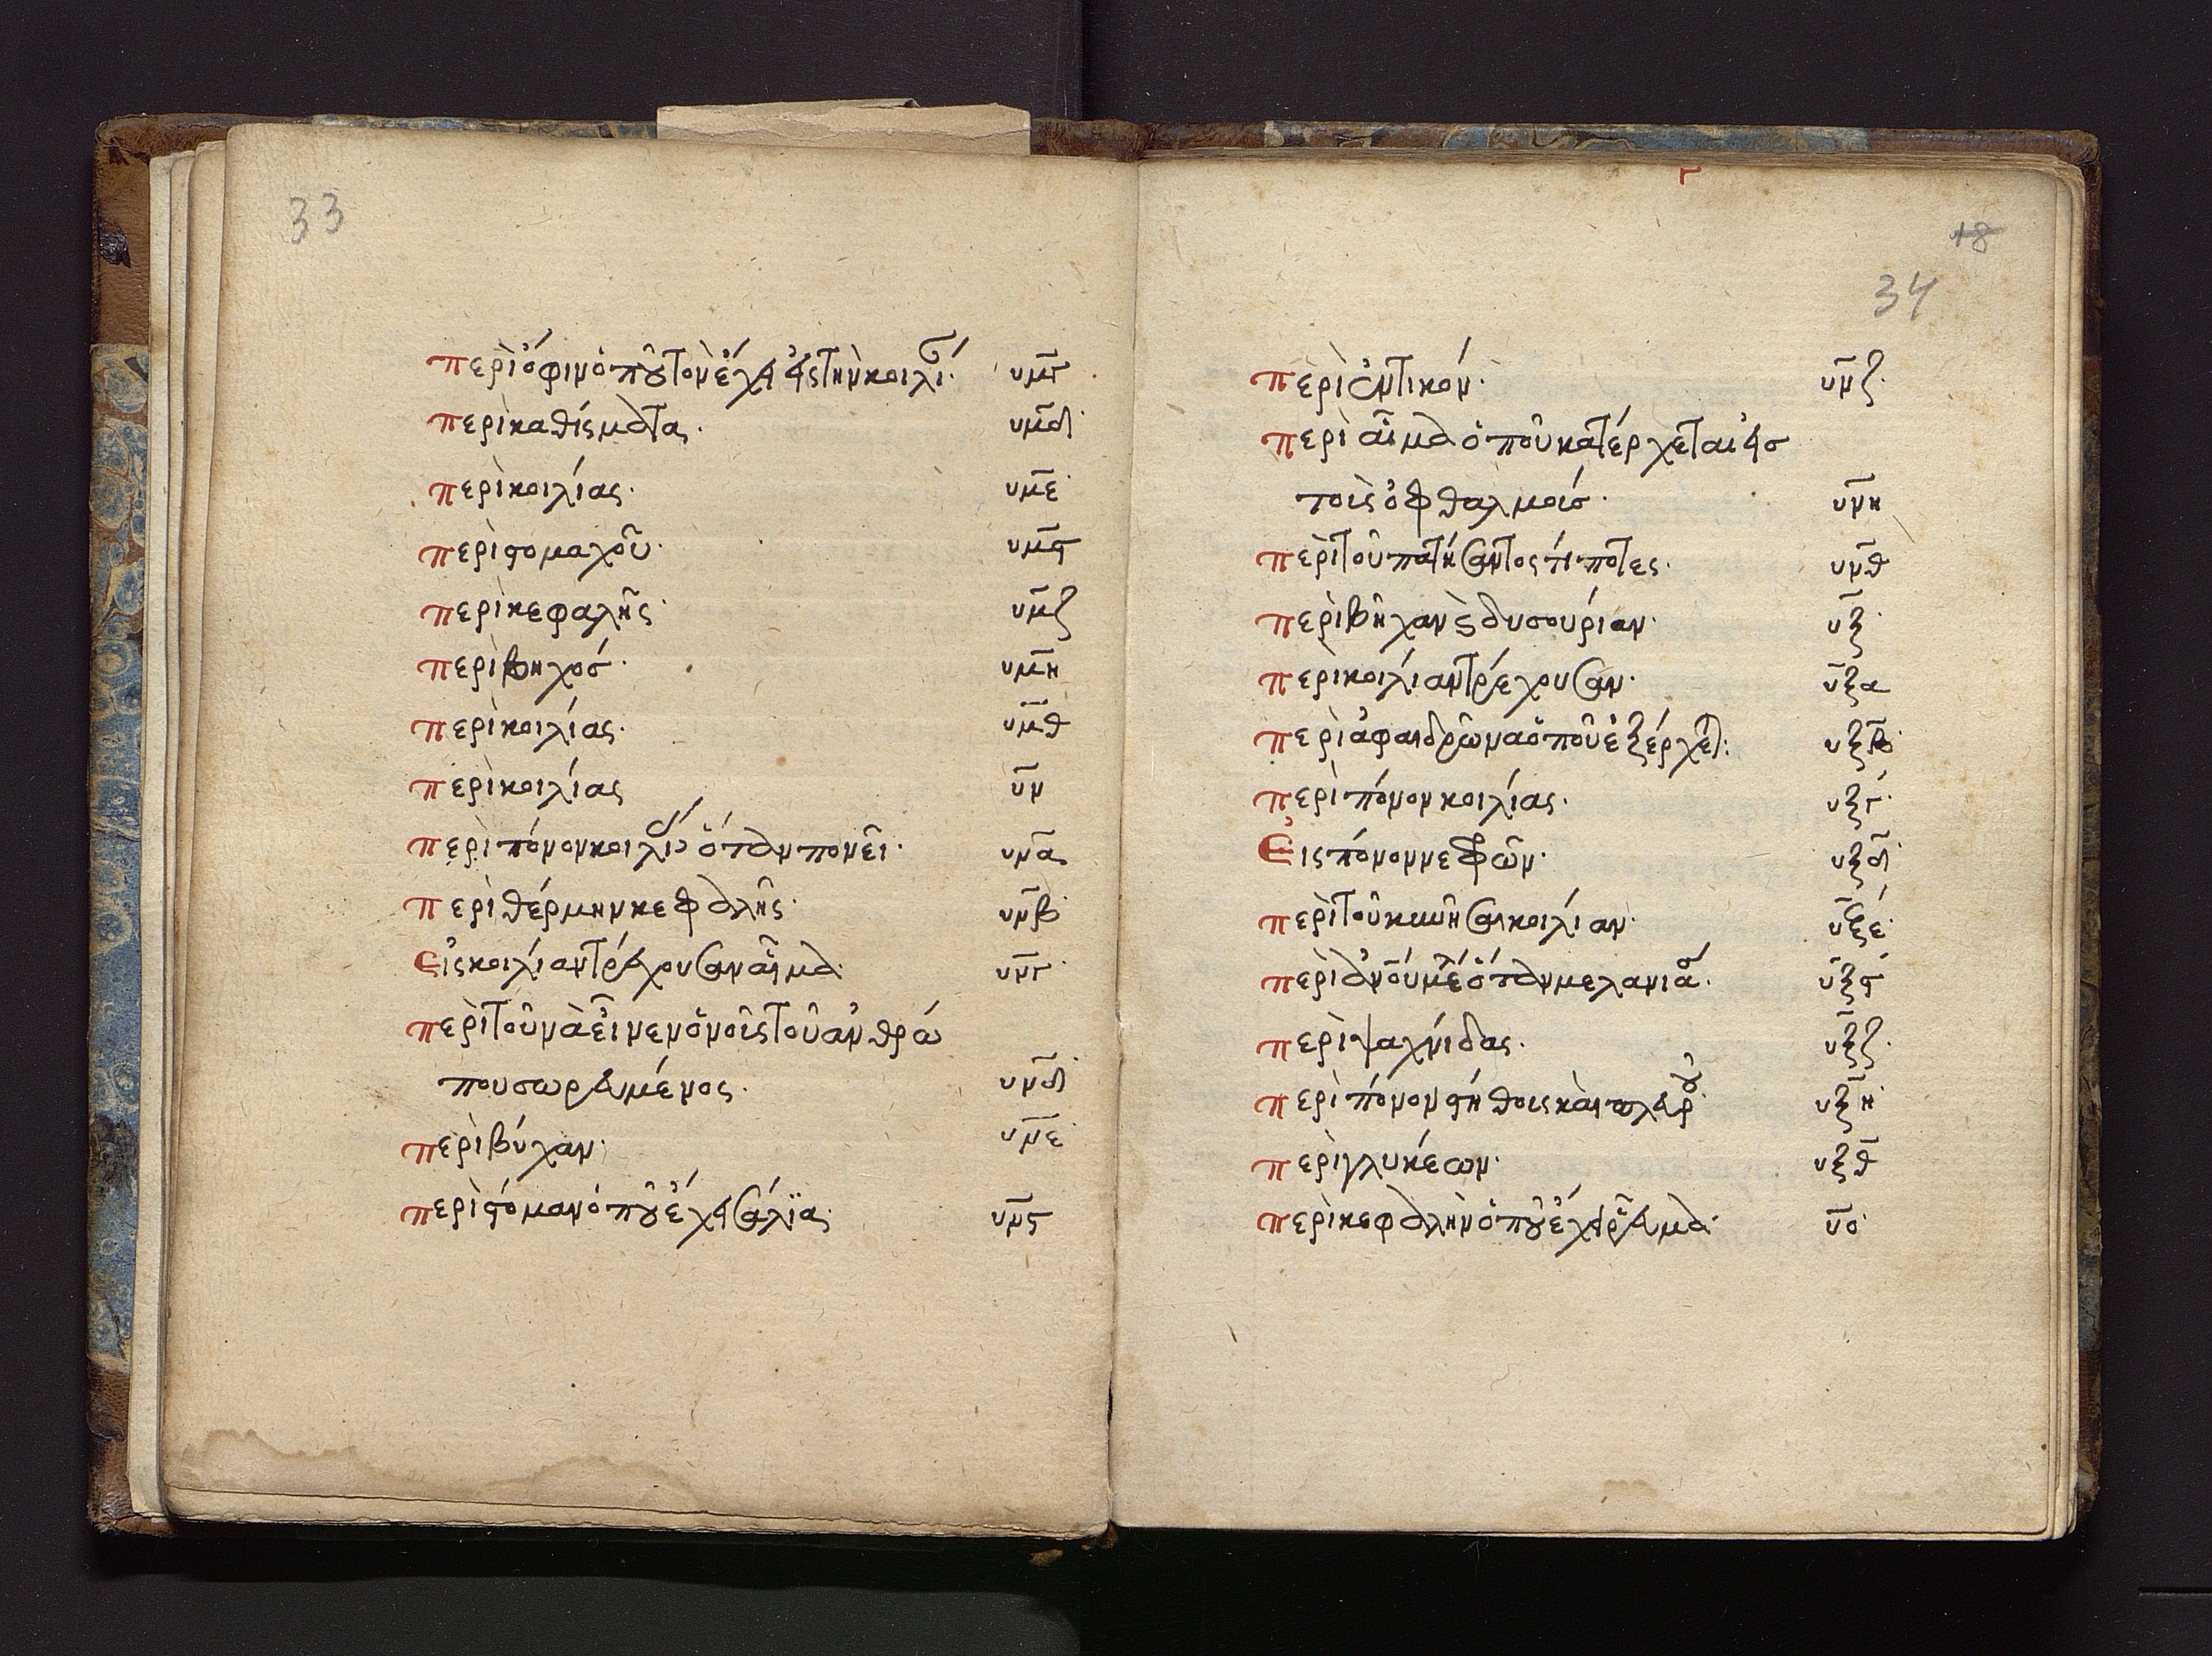 33
περὶ ὄφιν ὁποῦ τὸν ἔχει εἰς τὴν κοιλί. υμγ
περὶ καθίσματας. υμδ
περὶ κοιλίας. υμε
περὶ στομαχοῦ. υμϛ
περὶ κεφαλῆς. υμζ
περὶ βηχόσ. υμη
περὶ κοιλίας. υμθ
περὶ κοιλίας υν
περὶ πόνον κοιλίας ὅταν πονεῖ. υνα
περὶ θέρμην κεφαλῆς. υνβ
Εἰς κοιλίαν τρέχουσαν αἷμα. υνγ
περὶ τοῦ νὰ εἶνεν ὁ νοῦς τοῦ ἀνθρώ
που σωρεμένος. υνδ
περὶ βύχαν. υνε
περὶ στόμαν ὁποῦ ἔχει σάλϊας. υνϛ
18
34
περὶ ὀντικόν. υνζ
περὶ αἷμα ὁποῦ κατέρχεται εἰσ
τοὶς ὀφθαλμοίσ. υνη
περὶ τοῦ πατήσαντος τί ποτες. υνθ
περὶ βῆχαν καὶ δυσουρίαν. υξ
περὶ κοιλίαν τρέχουσαν. υξα
περὶ ἀφαιδρῶνα ὁποῦ ἐξέρχεται. υξβ
περὶ πόνον κοιλίας. υξγ
Εἰς πόνον νεφῶν. υξδ
περὶ τοῦ κοιλίαν. υξε
περὶ ὅταν μελανιᾶ. υξϛ
περὶ ψαχνίδας. υξζ
περὶ πόνον στήθοις καὶ πλευροῦ. υξη
περὶ γλυκέων. υξθ
περὶ κεφαλὴν ὁποῦ ἔχει ῥεῦμα. υο